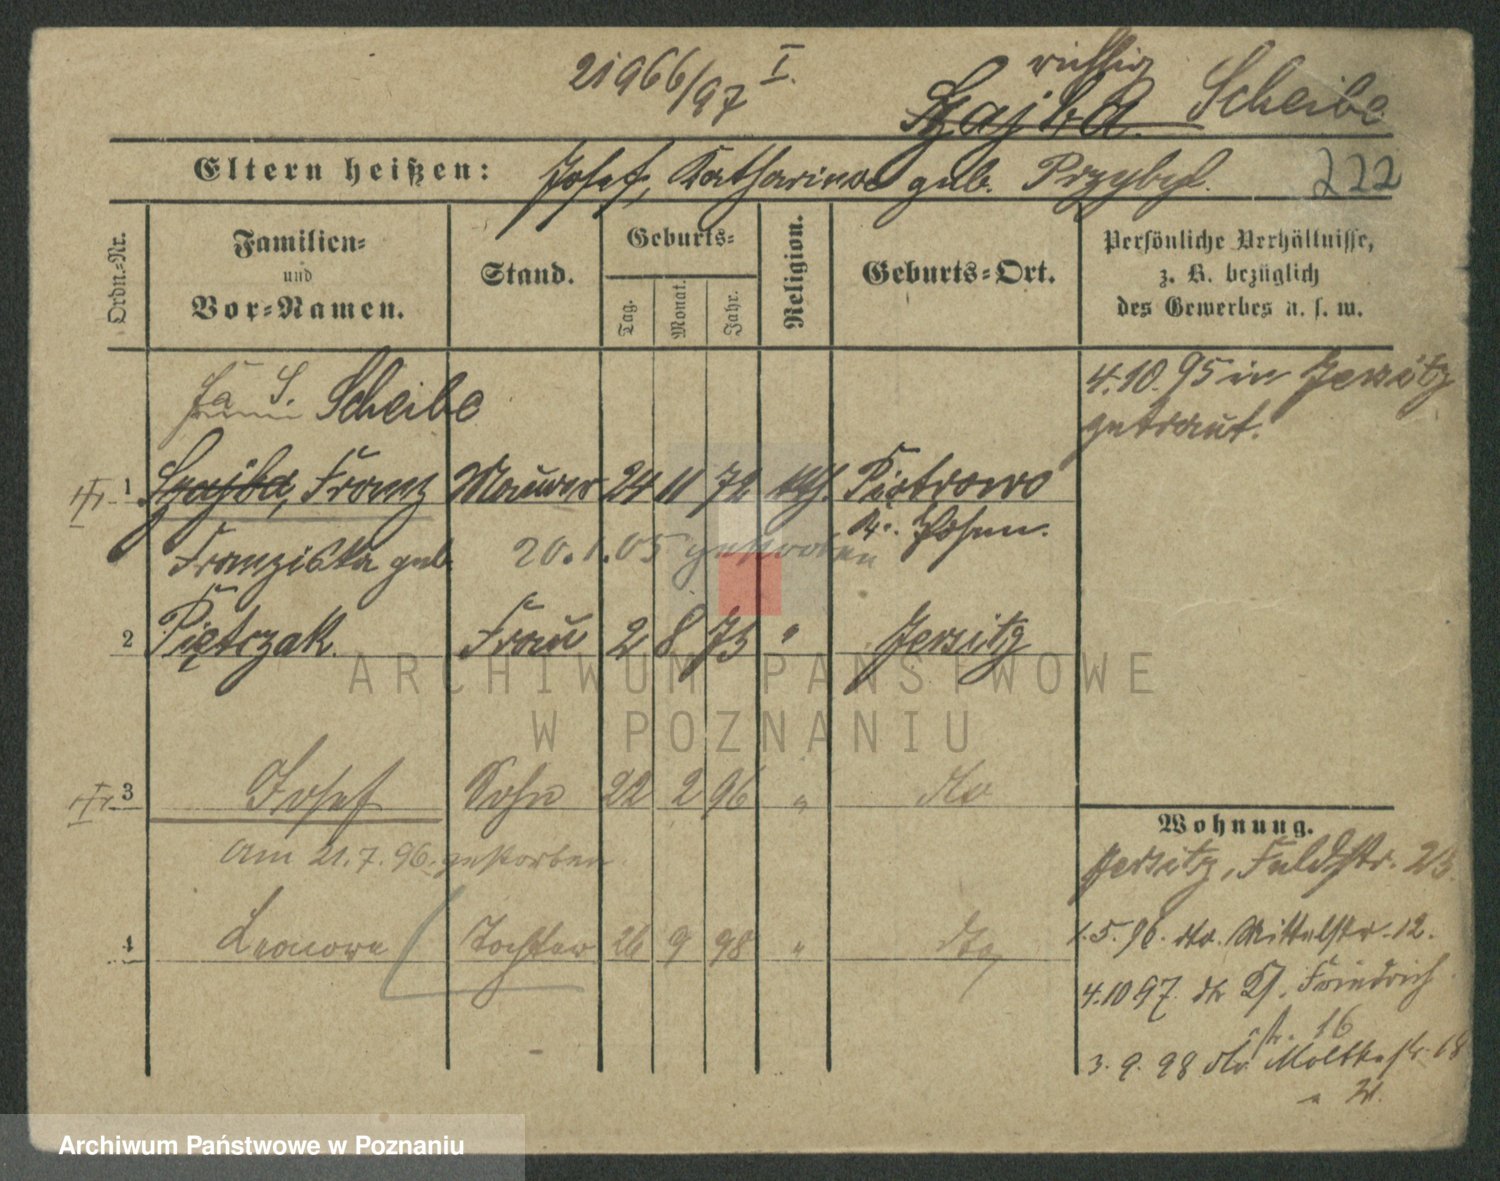 21966/97 I.
richtig
Szajba. Scheibe
Eltern heißen: Josef, Katharina geb. Przybyl.
222
Ordn.=Nr.
Familien=
und
Vor=Namen.
Stand.
Geburts=
Tag.
Monat.
Jahr.
Religion.
Geburts=Ort.
Persönliche Verhältnisse,
z. B. bezüglich
des Gewerbes u. s. w.
S. Scheibe
4.10.95 in Jersitz
getraut.
1 Szajba, Franz Maurer 24 11 72 kth. Piotrowo
Kr. Posen.
Franziska geb. 20.1.05 gestorben
2 Piętrzak Frau 2 8 73 " Jersitz
3 Josef Sohn 22 2 96 " dto
am 21.7.96. gestorben.
4 Leonore Tochter 26 9 98 " dto
Wohnung.
Jersitz, Feldstr. 23.
1.5.96. dto. Mittelstr. 12.
4.10 97. dto Friedrich
str. 16
3.9.98 dto Moltkestr. 18